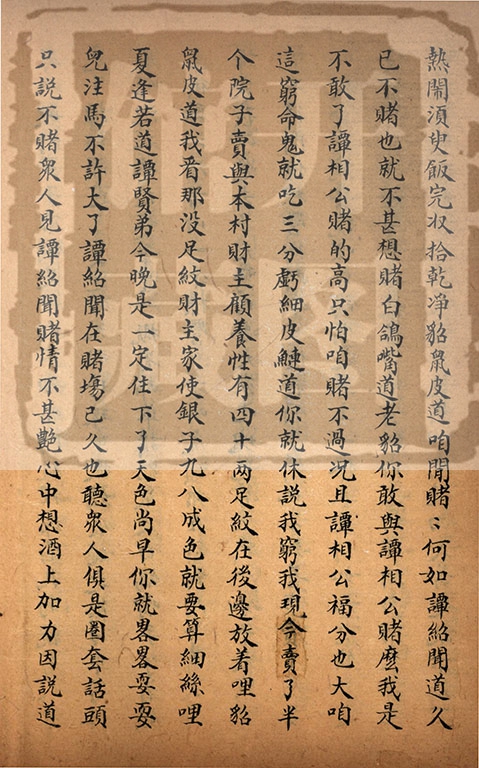 熱閙湏臾飯完収拾乾净貂䑕皮道咱閒賭〻何如譚紹聞道久
已不賭也就不甚想賭白鴿嘴道老貂你敢與譚相公賭麽我是
不敢了譚相公賭的高只怕咱賭不過况且譚相公福分也大咱
這窮命鬼就吃三分虧細皮鰱道你就休説我窮我現今賣了半
个院子賣與本村財主顧養性有四十两足紋在後邊放着哩貂
䑕皮道我看那没足紋財主家使銀子九八成色就要算細絲哩
夏逢若道譚賢弟今晚是一定住下了天色尚早你就畧畧耍耍
兒注馬不許大了譚紹聞在賭塲已久也聽衆人俱是圈套話頭
只説不賭衆人見譚紹聞賭情不甚艶心中想酒上加力因説道